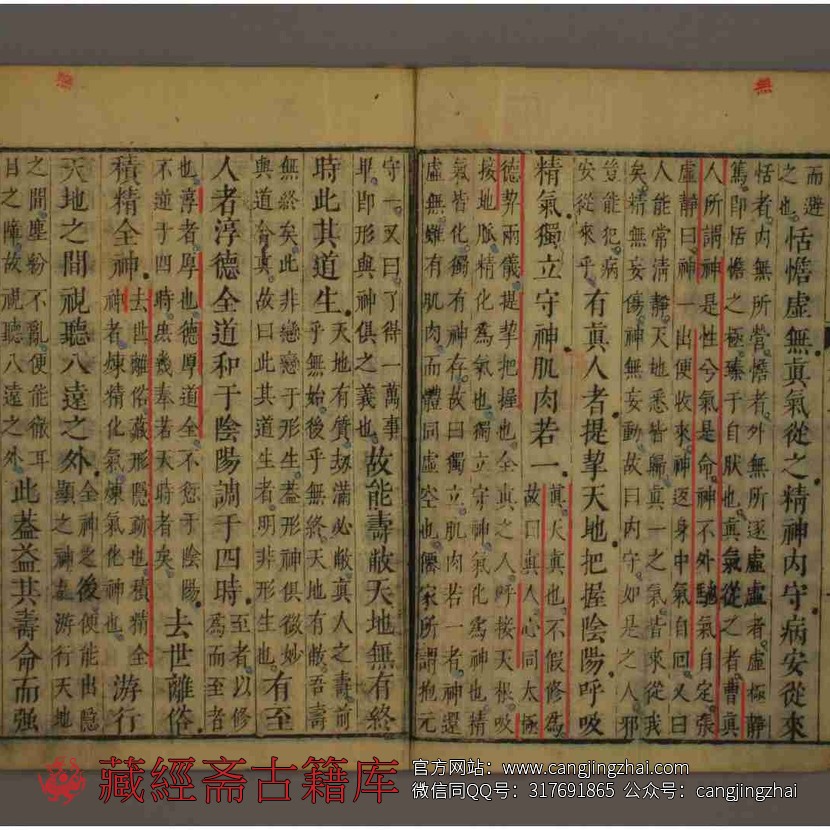 無
無
而避
之也
恬憺虛無眞氣從之精神内守病安從來
恬者内無所營憺者外無所逐虛虛者虛極靜
篤即恬憺之極臻于自肰也眞氣從之者曹眞
人所謂神是性兮氣是命神不外馳氣自定張
虛靜曰神一出便收來神返身中氣自回又曰
人能常淸靜天地悉皆歸眞一之氣皆來從我
矣精無妄傷神無妄動故曰内守如是之人邪
豈能犯病
安從來乎
有眞人者提挈天地把握陰陽呼吸
精氣獨立守神肌肉若一
眞人眞也不假修爲
故曰眞人心同太極
德契兩儀提挈把握也全眞之人呼接天根吸
接地脉精化爲氣也獨立守神氣化爲神也精
氣皆化獨有神存故曰獨立肌肉若一者神還
虛無雖有肌肉而體同虛空也僊家所謂抱元
守一又曰了得一萬事
畢即形與神俱之義也
故能壽敝天地無有終
時此其道生
天地有質劫滿必敝眞人之壽前
乎無始後乎無終天地有敝吾壽
無終矣此非戀戀于形生葢形神俱微妙
與道合眞故曰此其道生者明非形生也
有至
人者淳德全道和于陰陽調于四時
至者以修
爲而至者
也淳者厚也德厚道全不愆于陰陽
不逆于四時庶幾奉若天時者矣
去世離俗
積精全神
去世離俗藏形隱跡也積精全
神者煉精化氣煉氣化神也
游行
天地之間視聽八遠之外
全神之後便能出隱
顯之神游行天地
之間塵紛不亂便能徹耳
目之障故視聽八遠之外
此葢益其壽命而强
藏經斋古籍库
官方网站：www.cangjingzhai.com
微信同QQ号：317691865 公众号：cangjingzhai